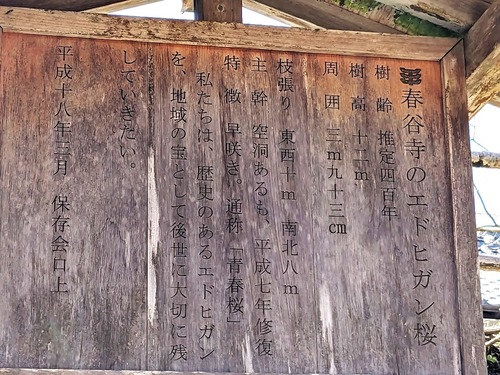 春谷寺のエドヒガン桜
樹齢 推定四百年
樹高 十二m
周囲 三m九十三cm
枝張り 東西十m 南北八m
主幹 空洞あるも、平成七年修復
特徴 早咲き。通称「青春桜」
私たちは、歴史のあるエドヒガン
を、地域の宝として後世に大切に残
していきたい。
平成十八年三月 保存会日上